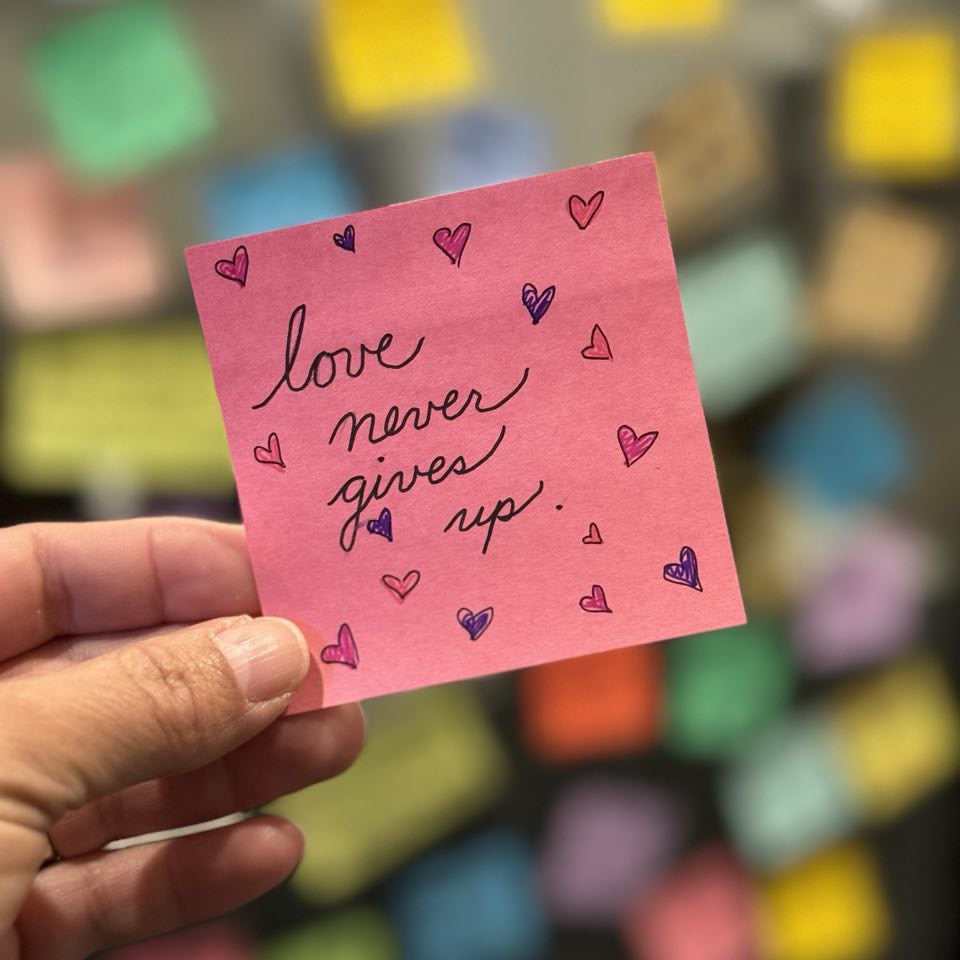 love
never
gives
up.